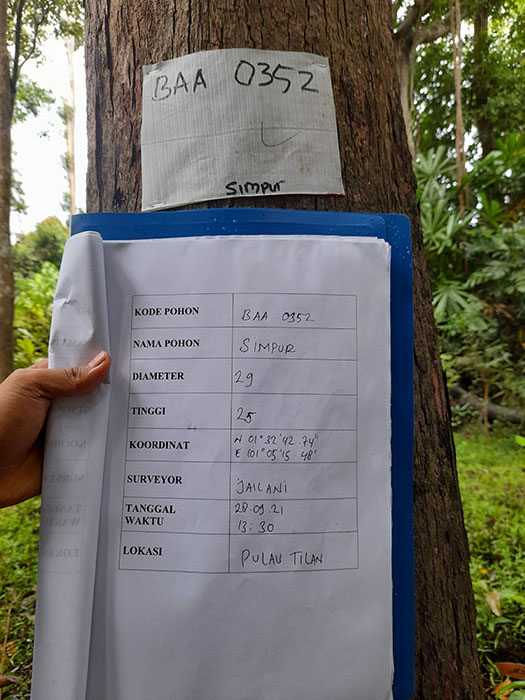 BAA 0352
Simpur
KODE POHON BAA 0352
NAMA POHON SIMPUR
DIAMETER 29
TINGGI 25
KOORDINAT N 01° 32' 42 74"
E 101° 05' 15 48"
SURVEYOR JAILANI
TANGGAL 28.09.21
WAKTU 13:30
LOKASI PULAU TILAN